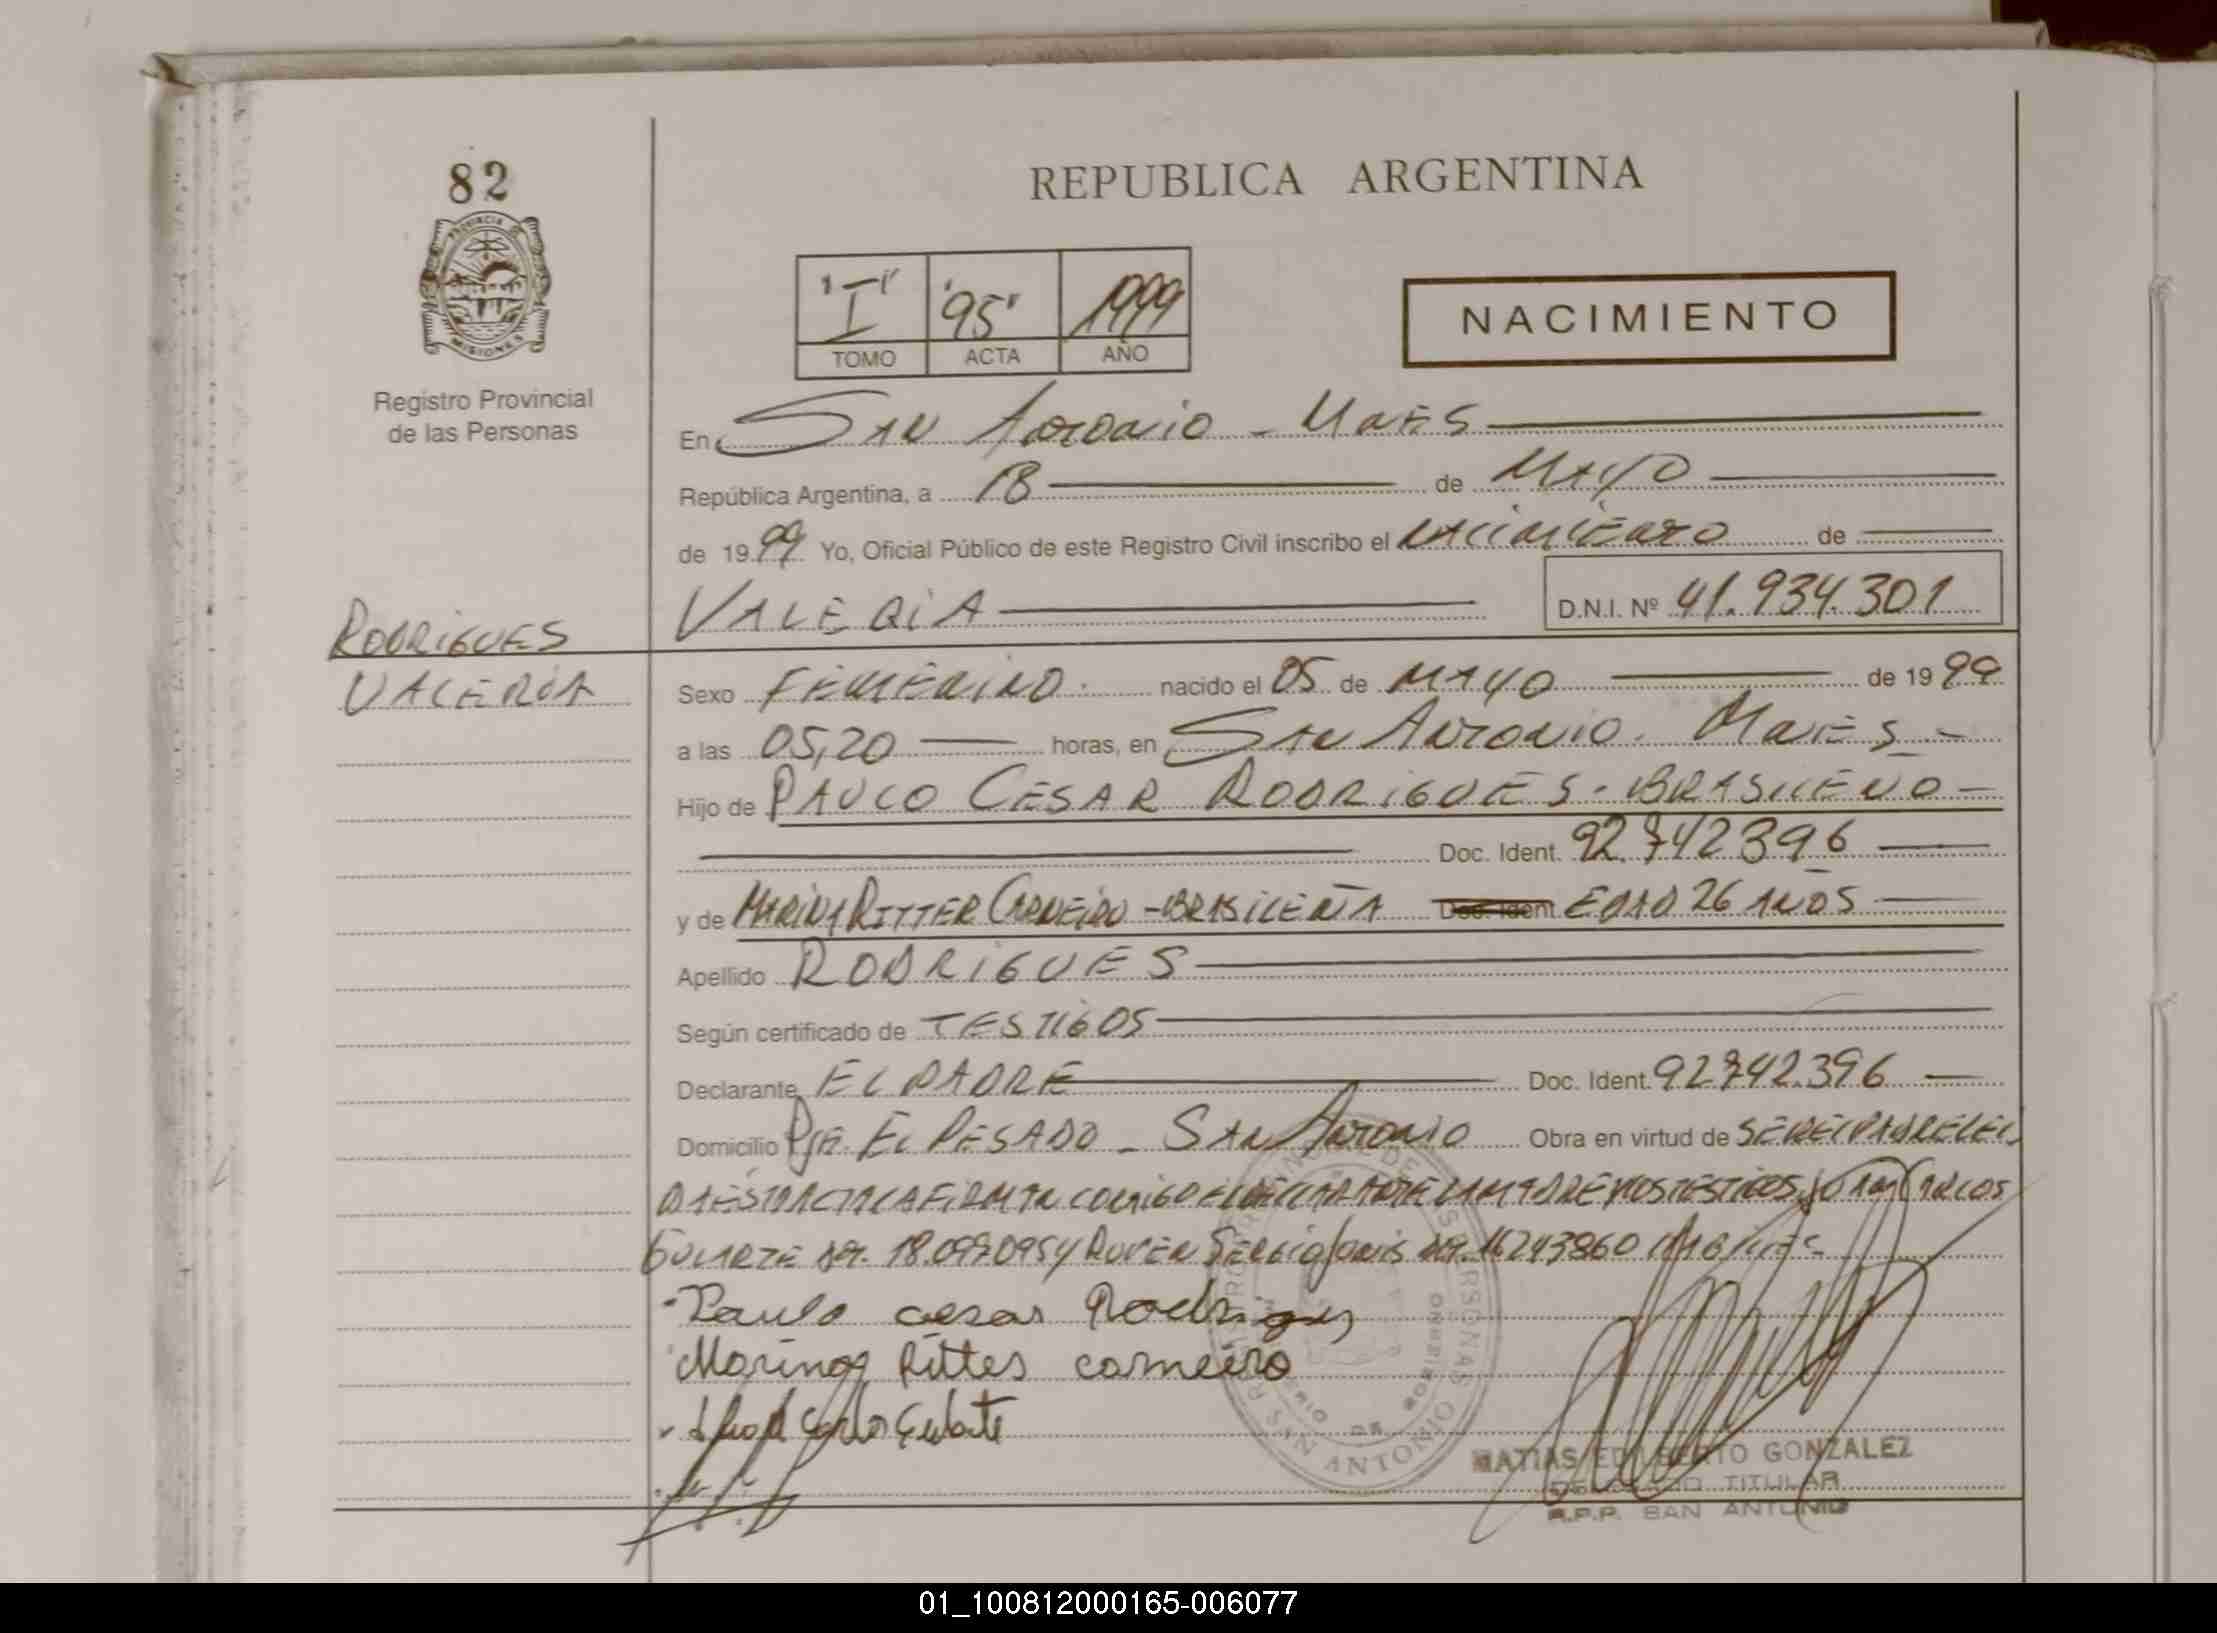 82
PROVINCIA DE
MISIONES
Registro Provincial
de las Personas
RODRIGUES
VALERIA
REPUBLICA ARGENTINA
"I" "95" 1999
TOMO ACTA AÑO
NACIMIENTO
En San Antonio - Mnes
República Argentina, a 18 de Mayo
de 1999 Yo, Oficial Público de este Registro Civil inscribo el nacimiento de
VALERIA D.N.I. Nº 41.934.301
Sexo FEMENINO. nacido el 05 de MAYO de 1999
a las 05,20 horas, en San Antonio. Mnes -
Hijo de PAULO CESAR RODRIGUES - BRASILEÑO -
Doc. Ident. 92.742396
y de MARINA RITTER CARNEIRO - BRASILEÑA Doc. Ident. EDAD 26 AÑOS
Apellido RODRIGUES
Según certificado de TESTIGOS
Declarante EL PADRE Doc. Ident. 92742.396
Domicilio Pje. EL PESADO - SAN ANTONIO Obra en virtud de SER EL PADRE LEI
DA ESTA ACTA LA FIRMAN CONMIGO EL DECLARANTE LA MADRE Y LOS TESTIGOS JUAN CARLOS
18.097095 Y RUVEN SERGIO 16243860
Paulo cesar Rodrigues
Marina Ritter carneiro
Juan Carlos
REGISTRO PROVINCIAL DE LAS PERSONAS
SAN ANTONIO
MINISTERIO DE GOBIERNO
MATIAS EDILBERTO GONZALEZ
DELEGADO TITULAR
R.P.P. SAN ANTONIO
01_100812000165-006077